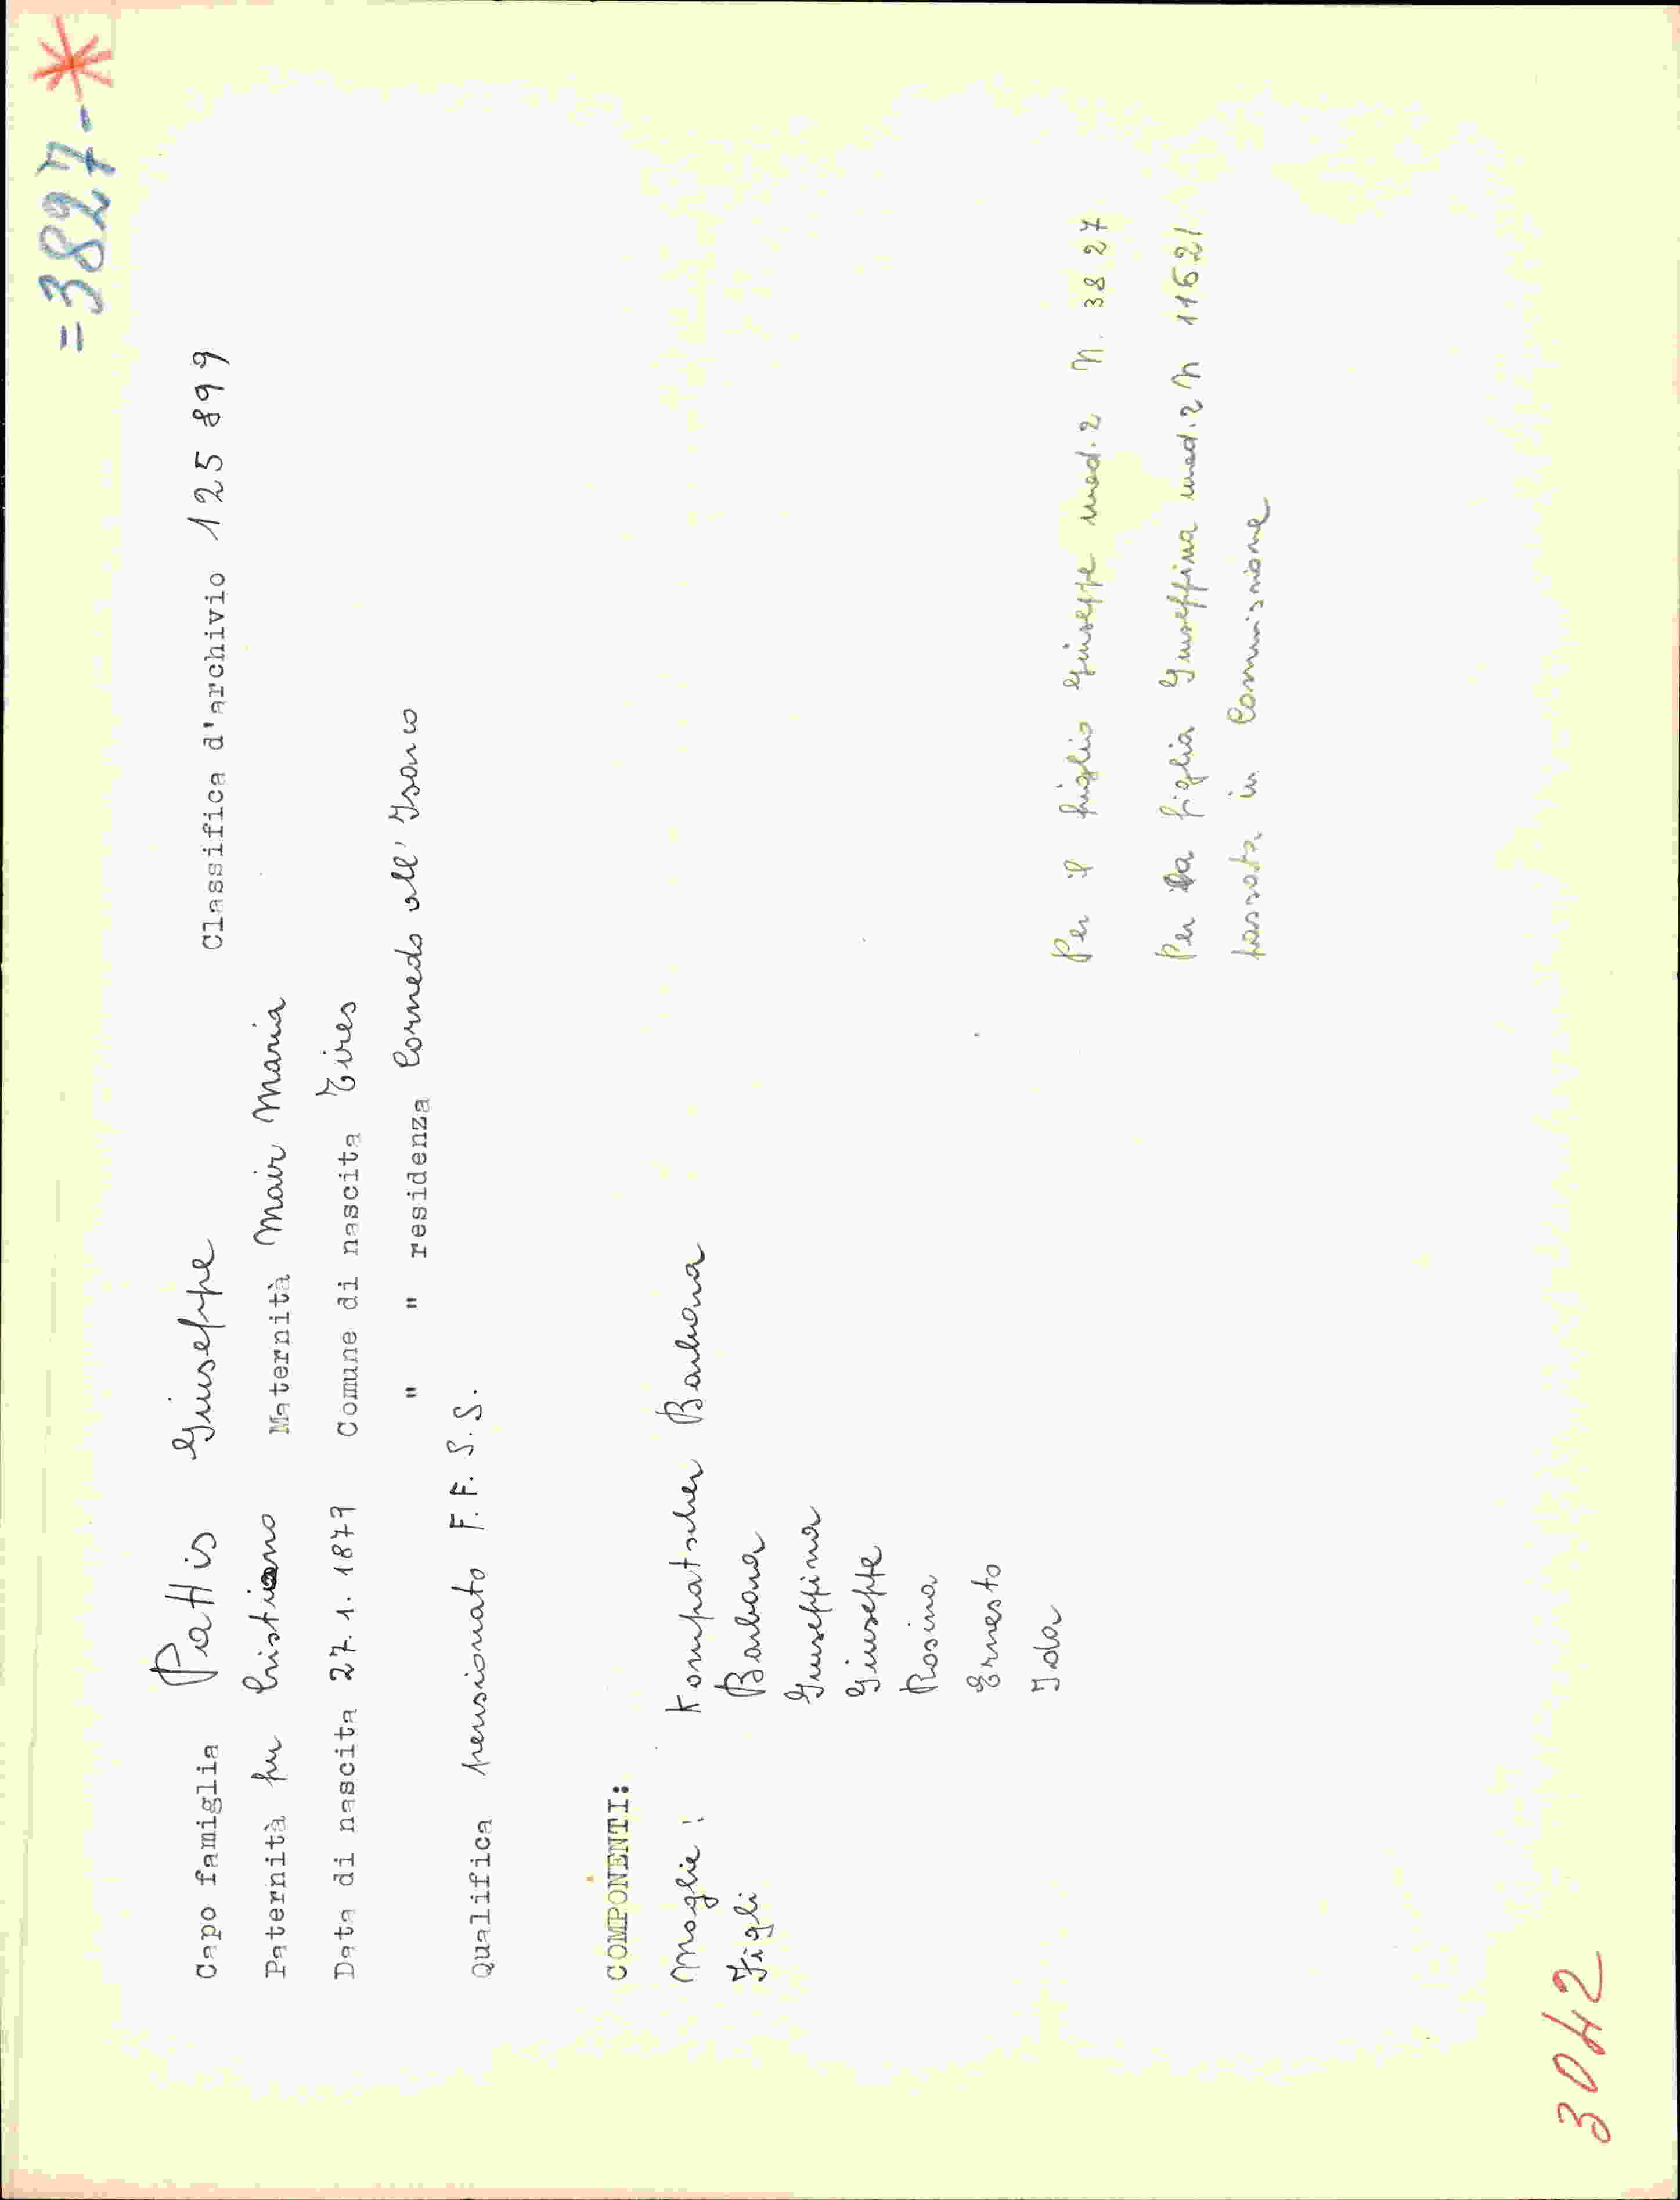 =3827-*
Capo famiglia Pattis Giuseppe Classifica d'archivio 125899
Paternità fu Cristiano Maternità Mair Maria
Data di nascita 27.1.1879 Comune di nascita Tires
" " residenza Cornedo all'Isarco
Qualifica pensionato F.F.S.S.
COMPONENTI:
Moglie: Kompatscher Barbara
Figli Barbara
Giuseppina
Giuseppe
Rosina
Ernesto
Ida
Per il figlio Giuseppe mod. 2 N. 3827
Per la figlia Giuseppina mod. 2 N 11621
passata in Commissione
3042